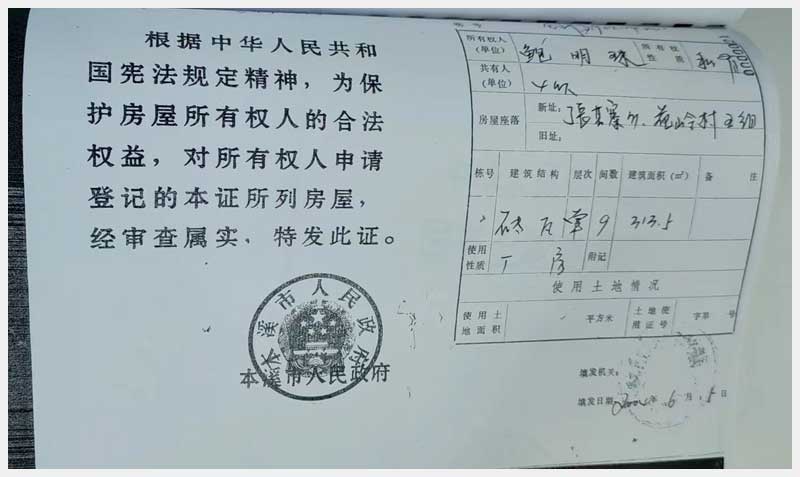 根据中华人民共和
国宪法规定精神，为保
护房屋所有权人的合法
权益，对所有权人申请
登记的本证所列房屋，
经审查属实，特发此证。
本溪市人民政府
本溪市人民政府
所有权人
(单位) 鲍明珠 所有权
性质 私有
共有人
(单位)
房屋座落 新址:
旧址:
栋号 建筑结构 层次 间数 建筑面积(㎡) 备注
9 313.5
使用
性质 附记
使用土地情况
使用土
地面积 平方米 土地使
用证号 字第 号
填发机关:
填发日期 年 6 月 5 日